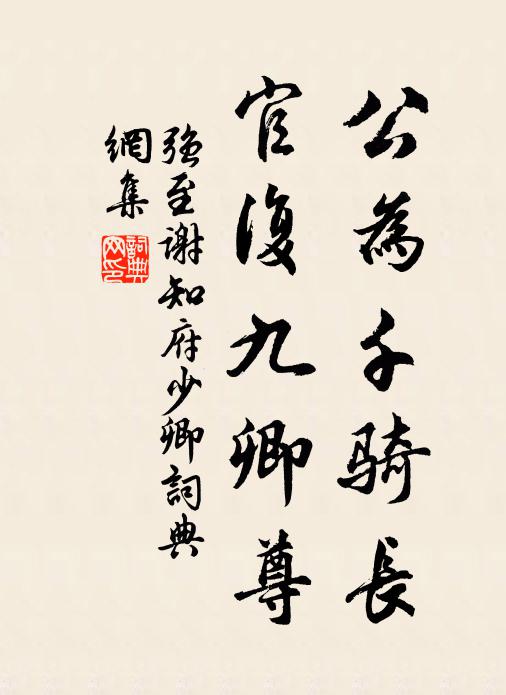 公為千騎長
官復九卿尊
強至謝知府少卿詞典
網集
詞典網印